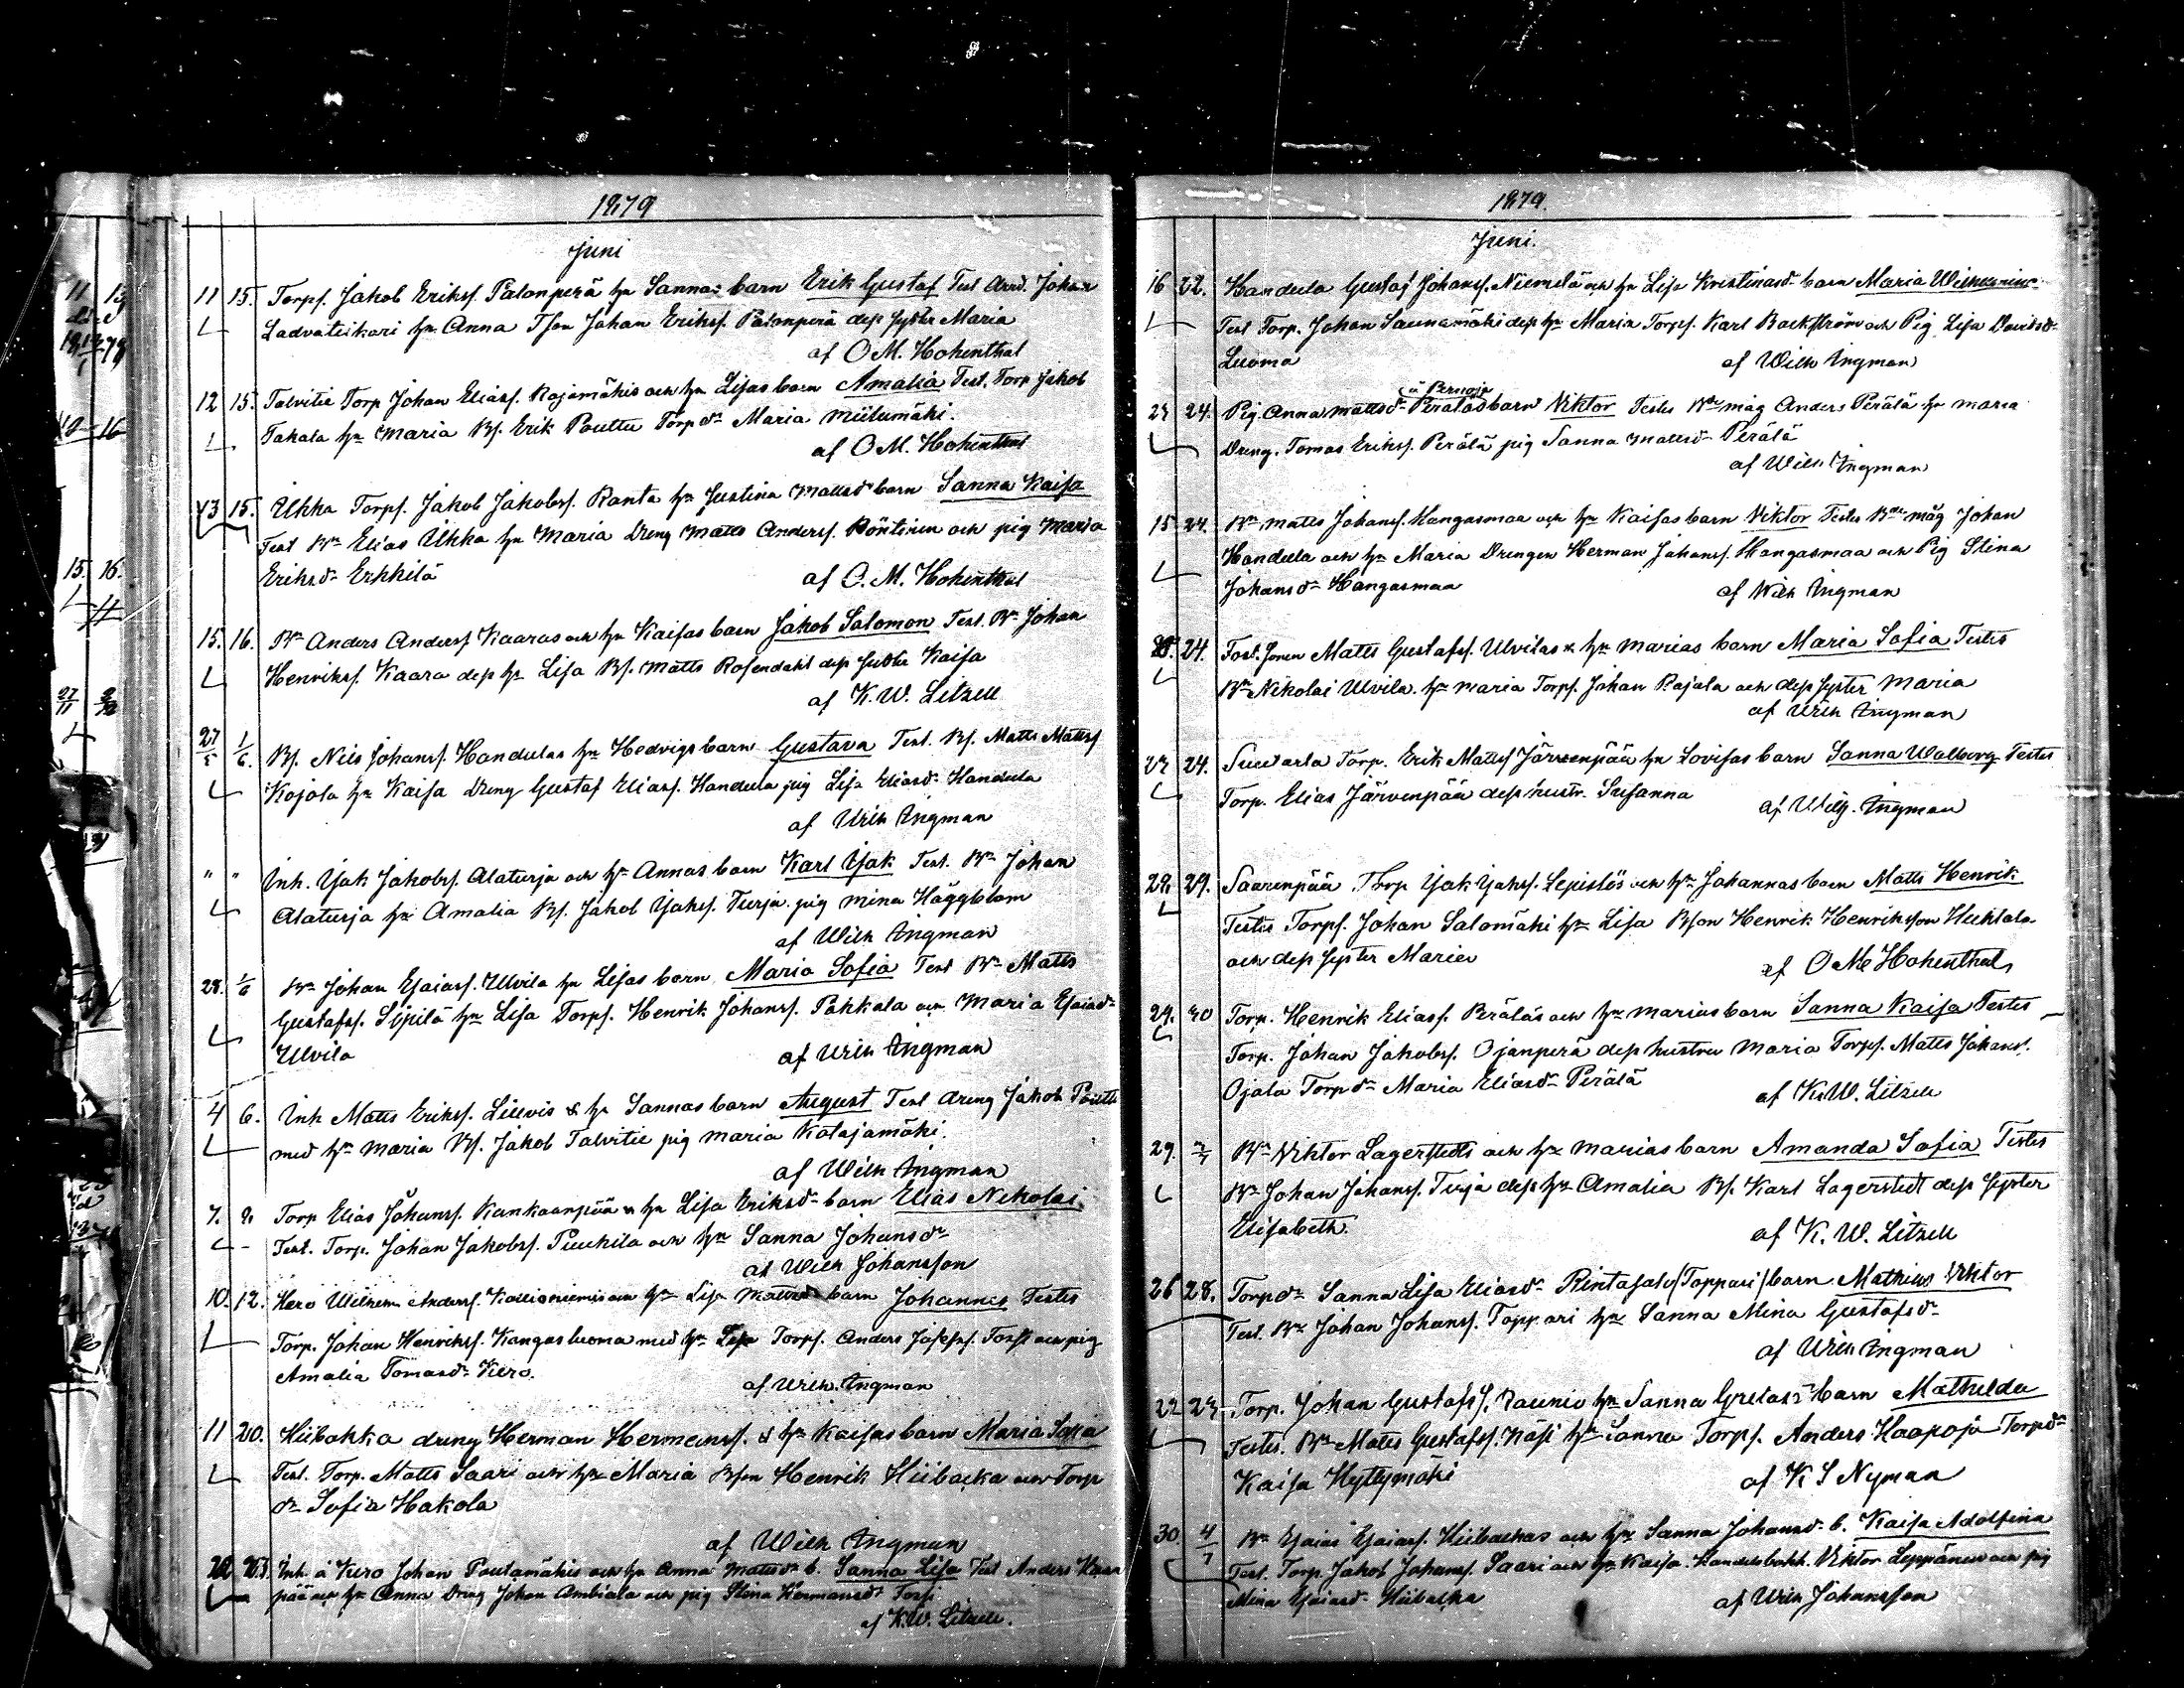 1879
Juni
11 15. Torpf. Jakob Eriksf. Palonperä hu Sannas barn Erik Gustaf Test Johan
Ladvateikari hu Anna Tson Johan Eriksf. Palonperä dess syster Maria
af O M. Hohenthal
12 15. Talvitie Torp Johan Eliasf. Rajamäkis och hu Lisas barn Amalia Test. Torp Jakob
Takala hu Maria Bf. Erik Pouttu Torpdr Maria Miilumäki.
af O M. Hohenthal
13 15. Ukka Torpf. Jakob Jakobsf. Ranta hu Justina Mattsdr barn Sanna Kaisa
Test Bn Elias Ukka hu Maria Dreng Matts Andersf. Röntinen och pig Maria
Eriksdr Erkkilä af O. M. Hohenthal
15. 16. Bn Anders Andersf Kaaras och hu Kaisas barn Jakob Salomon Test. Bn Johan
Henriksf. Kaara dess hu Lisa Bf. Matts Rosendahl dess syster Kaisa
af K. W. Litzell
27/5 1/6. Bf. Nils Johansf. Handulas hu Hedvigs barn Gustava Test. Bf. Matts Mattsf
Kojola hu Kaisa Dreng Gustaf Eliasf. Handula pig Lisa Eliasdr Handula
af Wilh Ingman
" " Inh. Isak Jakobsf. Alaturja och hu Annas barn Karl Isak Test. Bn Johan
Alaturja hu Amalia Bf. Jakob Isaksf. Turja pig Mina Häggblom
af Wilh Ingman
28. 1/6 Bn Johan Esaiasf. Ulvila hu Lisas barn Maria Sofia Test Bn Matts
Gustafsf. Sipilä hu Lisa Torpf. Henrik Johansf. Pakkala och Maria Esaiadr
Ulvila af Wilh Ingman
4 6. Inh Matts Eriksf. Liuvis & hu Sannas barn August Test dreng Jakob Pouttu
med hu Maria Bf. Jakob Talvitie pig Maria Katajamäki.
af Wilh Ingman
7. 8. Torp Elias Johansf. Kankaanpää & hu Lisa Eriksdr barn Elias Nikolai
Test. Torp. Johan Jakobsf. Puukila och hu Sanna Johansdr
af Wilh Johansson
10. 12. Kero Wilhem Andersf. Kallioniemis och hu Lisa Mattsdr barn Johannes Testes
Torp. Johan Henriksf. Kangasluoma med hu Lisa Torpf. Anders Josefsf. Torfi och pig
Amalia Tomasdr Kero. af Wilh. Ingman
11 20. Hiibakka dreng Herman Hermansf. & hu Kaisas barn Maria Sofia
Test. Torp. Matts Saari och hu Maria Bson Henrik Hiibacka och Torp
dr Sofia Hakola
af Wilh Ingman
Inh. å Kero Johan Poutamäkis och hu Anna Mattsdr b. Sanna Lisa Test Anders
pää och hu Anna Dreng Johan Ambiala och pig Stina Hermansdr Torfi
af K. W. Litzell.
1879.
Juni.
16 22. Handula Gustaf Johansf. Niemelä och hu Lisa Kristinasdr barn Maria Wilhelmina
Test Torp. Johan Saunamäki dess hu Maria Torpf. Karl Backström och Pig Lisa Davidsdr
Luoma af Wilh Ingman
å Pernaja
23 24. Pig. Anna Mattsdr Perälas barn Viktor Testes Bde måg Anders Perälä hu Maria
Dreng. Tomas Eriksf. Perälä pig Sanna Mattsdr Perälä
af Wilh Ingman
15 24. Bn Matts Johansf. Hangasmaa och hu Kaisas barn Viktor Testes Bde måg Johan
Handula och hu Maria Drengen Herman Johansf. Hangasmaa och Pig Stina
Johansdr Hangasmaa af Wilh Ingman
24. Matts Gustafsf. Ulvilas & hu Marias barn Maria Sofia Testes
Bn Nikolai Ulvila hu Maria Torpf. Johan Rajala och dess syster Maria
af Wilh Ingman
23 24. Torp. Erik Mattsf Järvenpää hu Lovisas barn Sanna Walborg Testes
Torp. Elias Järvenpää dess hustr. Susanna af Wilh. Ingman
29. Saarenpää Torp Isak Isaksf. Lepistös och hu Johannas barn Matts Henrik
Testes Torpf. Johan Salomäki hu Lisa Bson Henrik Henriksson Huhtala
och dess syster Maria af O M Hohenthal
24. 30 Torp. Henrik Eliasf. Peräläs och hu Marias barn Sanna Kaisa Testes
Torp. Johan Jakobsf. Ojanperä dess hustru Maria Torpf. Matts Johansf.
Ojala Torpdr Maria Eliasdr Perälä af K. W. Litzell
29. Bn Viktor Lagerstedts och hu Marias barn Amanda Sofia Testes
Bn Johan Johansf. Turja dess hu Amalia Bf. Karl Lagerstedt dess syster
Elisabeth. af K. W. Litzell
26 28. Torpdr Sanna Lisa Eliasdr Rintasalo (Toppari) barn Mathias Viktor
Test. Bn Johan Johansf. Toppari hu Sanna Mina Gustafsdr
af Wilh Ingman
22 23 Torp. Johan Gustafsf. Raunio hu Sanna Gretas barn Mathilda
Testes. Bn Matts Gustafsf. Näsi hu Sanna Torpf. Anders Haapoja Torpdr
Kaisa Hyttymäki af K S Nyman
30. 4/7 Bn Esaias Esaiasf. Hiibackas och hu Sanna Johansdr b. Kaisa Adolfina
Test. Torp. Jakob Johansf. Saari och hu Kaisa. Handelsbokh. Viktor Leppänen och pig
Mina Esaiasdr Hiibacka af Wilh Johansson